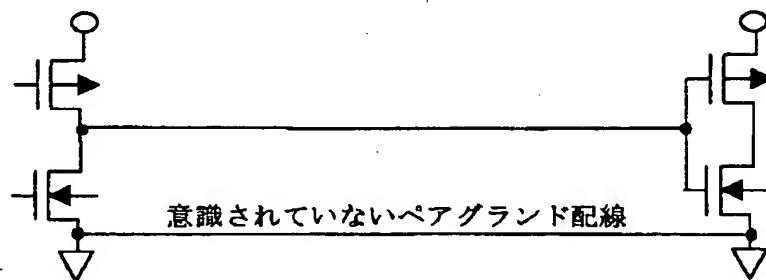 意識されていないペアグランド配線